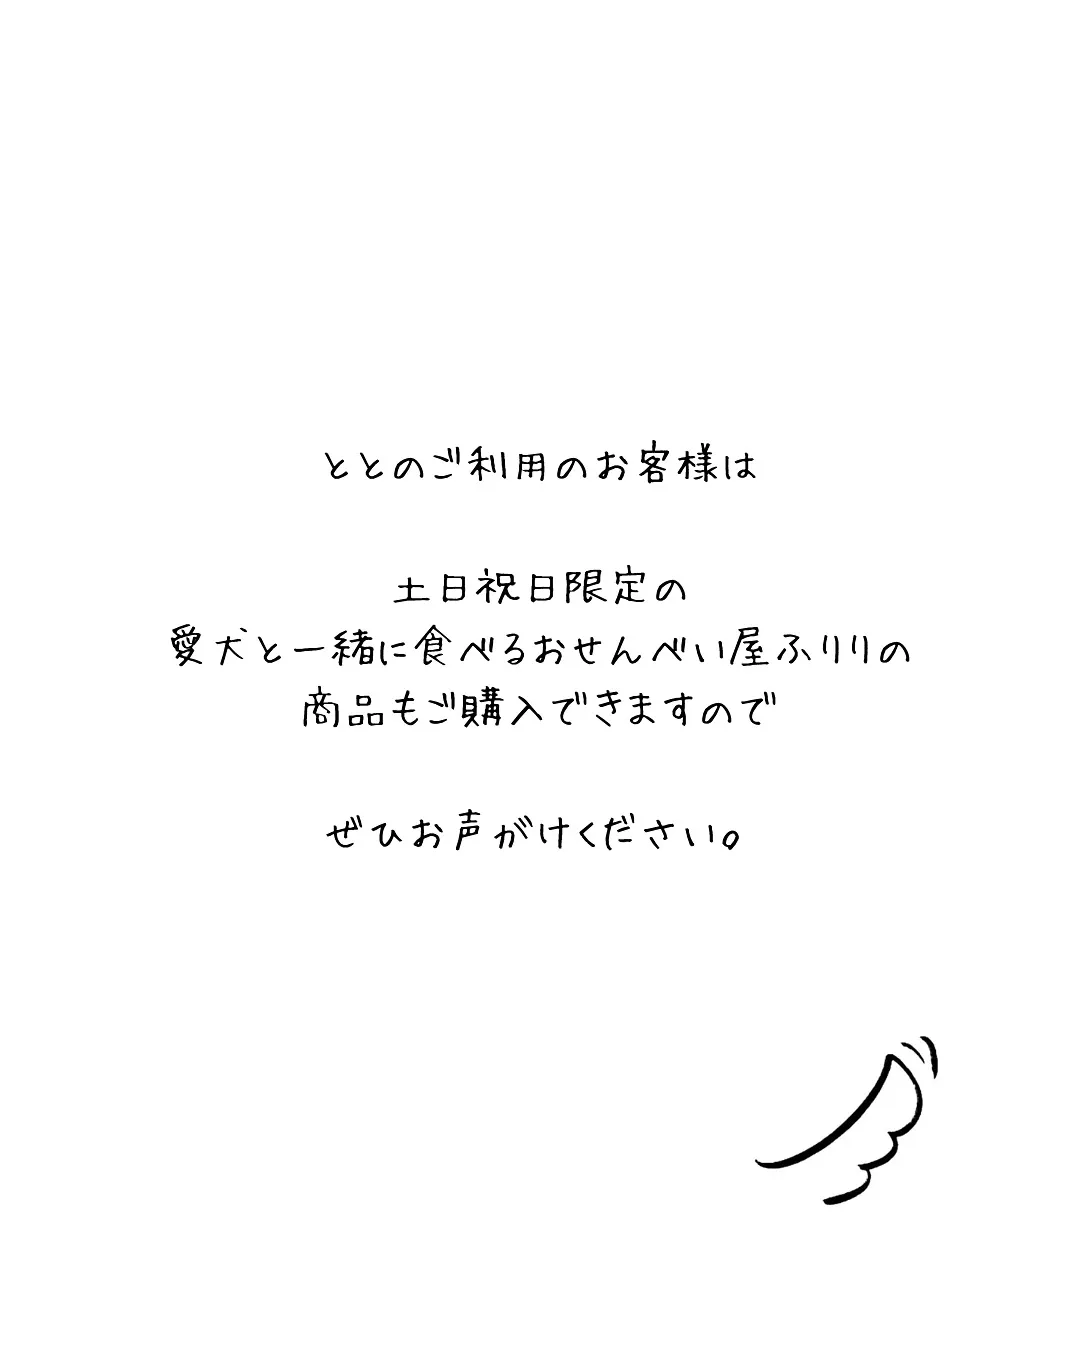 ととのご利用のお客様は
土日祝日限定の
愛犬と一緒に食べるおせんべい屋ふりりの
商品もご購入できますので
ぜひお声がけください。